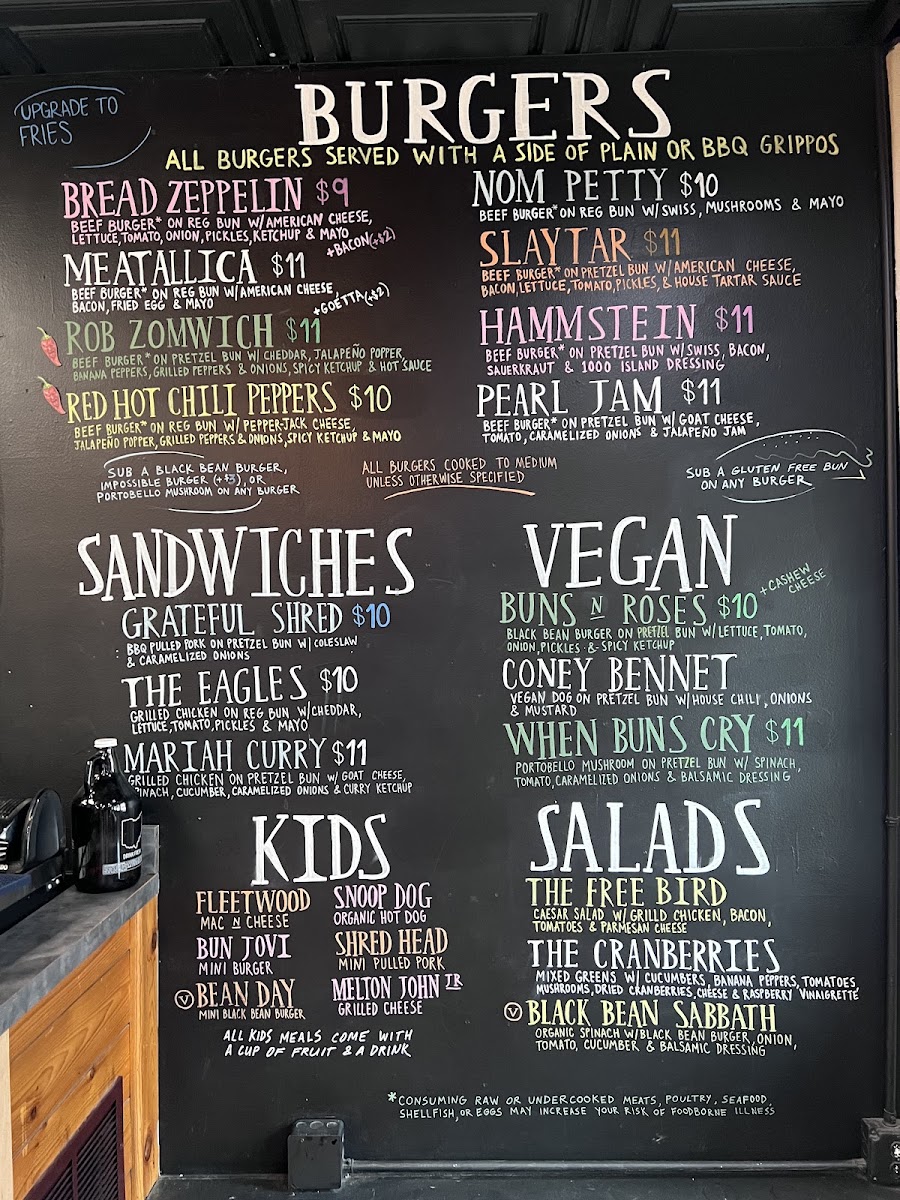 UPGRADE TO
FRIES
BURGERS
ALL BURGERS SERVED WITH A SIDE OF PLAIN OR BBQ GRIPPOS
BREAD ZEPPELIN $9
BEEF BURGER* ON REG BUN W/AMERICAN CHEESE,
LETTUCE, TOMATO, ONION, PICKLES, KETCHUP & MAYO
+BACON (+$2)
MEATALLICA $11
BEEF BURGER* ON REG BUN W/AMERICAN CHEESE
BACON, FRIED EGG & MAYO
+GOETTA (+$2)
ROB ZOMWICH $11
BEEF BURGER* ON PRETZEL BUN W/ CHEDDAR, JALAPEÑO POPPER,
BANANA PEPPERS, GRILLED PEPPERS & ONIONS, SPICY KETCHUP & HOT SAUCE
RED HOT CHILI PEPPERS $10
BEEF BURGER* ON REG BUN W/ PEPPER-JACK CHEESE,
JALAPEÑO POPPER, GRILLED PEPPERS & ONIONS, SPICY KETCHUP & MAYO
NOM PETTY $10
BEEF BURGER* ON REG BUN W/SWISS, MUSHROOMS & MAYO
SLAYTAR $11
BEEF BURGER* ON PRETZEL BUN W/AMERICAN CHEESE,
BACON, LETTUCE, TOMATO, PICKLES, & HOUSE TARTAR SAUCE
HAMMSTEIN $11
BEEF BURGER* ON PRETZEL BUN W/SWISS, BACON,
SAUERKRAUT & 1000 ISLAND DRESSING
PEARL JAM $11
BEEF BURGER* ON PRETZEL BUN W/ GOAT CHEESE,
TOMATO, CARAMELIZED ONIONS & JALAPEÑO JAM
SUB A BLACK BEAN BURGER,
IMPOSSIBLE BURGER (+$3), OR
PORTOBELLO MUSHROOM ON ANY BURGER
ALL BURGERS COOKED TO MEDIUM
UNLESS OTHERWISE SPECIFIED
SUB A GLUTEN FREE BUN
ON ANY BURGER
SANDWICHES
GRATEFUL SHRED $10
BBQ PULLED PORK ON PRETZEL BUN W/ COLESLAW
& CARAMELIZED ONIONS
THE EAGLES $10
GRILLED CHICKEN ON REG BUN W/CHEDDAR,
LETTUCE, TOMATO, PICKLES & MAYO
MARIAH CURRY $11
GRILLED CHICKEN ON PRETZEL BUN W/ GOAT CHEESE,
SPINACH, CUCUMBER, CARAMELIZED ONIONS & CURRY KETCHUP
VEGAN
BUNS N ROSES $10
+CASHEW
CHEESE
BLACK BEAN BURGER ON PRETZEL BUN W/LETTUCE, TOMATO,
ONION, PICKLES & SPICY KETCHUP
CONEY BENNET
VEGAN DOG ON PRETZEL BUN W/HOUSE CHILI, ONIONS
& MUSTARD
WHEN BUNS CRY $11
PORTOBELLO MUSHROOM ON PRETZEL BUN W/ SPINACH,
TOMATO, CARAMELIZED ONIONS & BALSAMIC DRESSING
KIDS
FLEETWOOD
MAC N CHEESE
BUN JOVI
MINI BURGER
V BEAN DAY
MINI BLACK BEAN BURGER
SNOOP DOG
ORGANIC HOT DOG
SHRED HEAD
MINI PULLED PORK
MELTON JOHN JR
GRILLED CHEESE
ALL KIDS MEALS COME WITH
A CUP OF FRUIT & A DRINK
SALADS
THE FREE BIRD
CAESAR SALAD W/ GRILLD CHICKEN, BACON,
TOMATOES & PARMESAN CHEESE
THE CRANBERRIES
MIXED GREENS W/ CUCUMBERS, BANANA PEPPERS, TOMATOES,
MUSHROOMS, DRIED CRANBERRIES, CHEESE & RASPBERRY VINAIGRETTE
V BLACK BEAN SABBATH
ORGANIC SPINACH W/BLACK BEAN BURGER, ONION,
TOMATO, CUCUMBER & BALSAMIC DRESSING
*CONSUMING RAW OR UNDERCOOKED MEATS, POULTRY, SEAFOOD,
SHELLFISH, OR EGGS MAY INCREASE YOUR RISK OF FOODBORNE ILLNESS